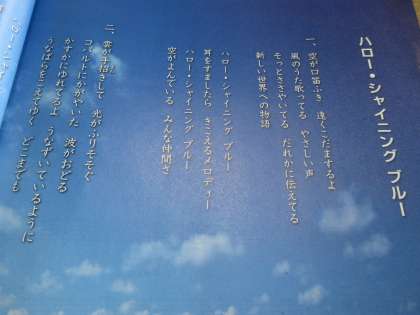 ハロー・シャイニング ブルー
一、空が口笛ふき 遠くこだまするよ
風のうた歌ってる やさしい声
そっとささやいてる だれかに伝えてる
新しい世界への物語
ハロー シャイニング ブルー
耳をすましたら きこえるメロディー
ハロー シャイニング ブルー
空がよんでいる みんな仲間さ
二、雲が手招きして 光がふりそそぐ
コバルトにかがやいた 波がおどる
かすかにゆれてるよ うなずいているように
うなばらをこえてゆく どこまでも